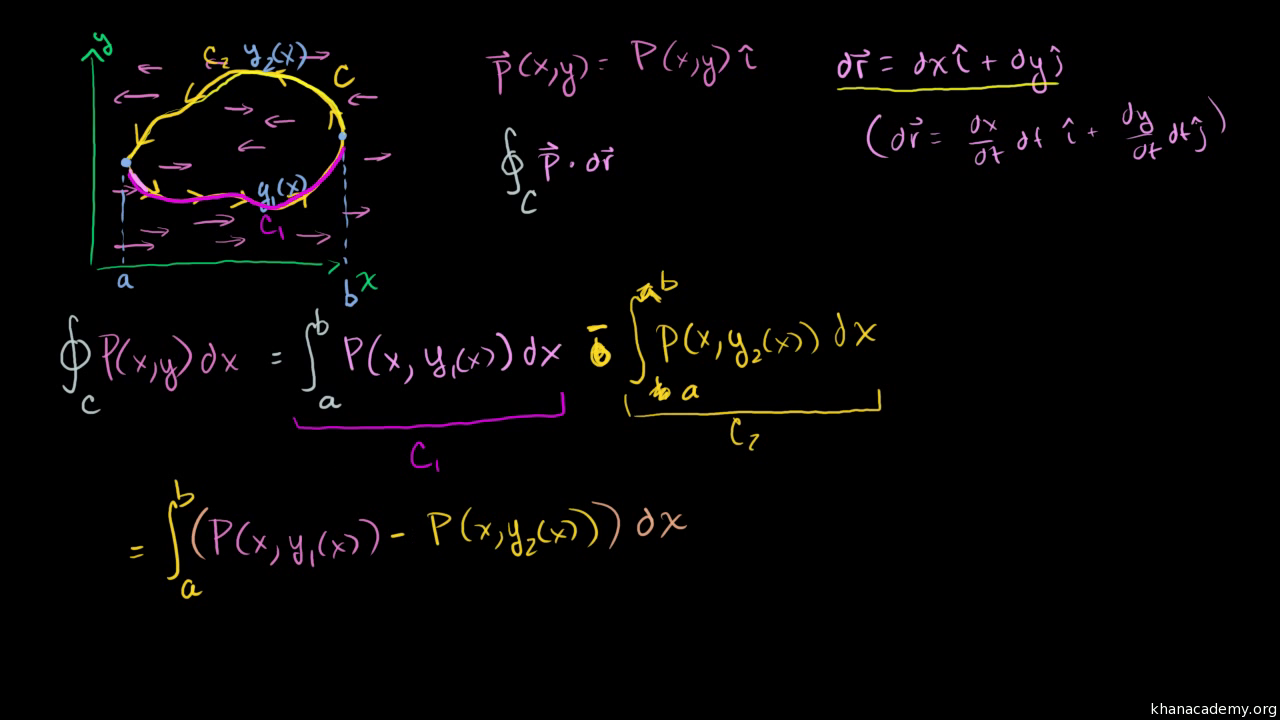 y
C₂ y₂(x)
C
y₁(x)
C₁
a
b x
P⃗(x,y) = P(x,y) î
dr⃗ = dx î + dy ĵ
(dr⃗ = dx/dt dt î + dy/dt dt ĵ)
∮_C P⃗ · dr⃗
∮_C P(x,y) dx = ∫_a^b P(x, y₁(x)) dx - ∫_a^b P(x, y₂(x)) dx
C₁
C₂
= ∫_a^b (P(x, y₁(x)) - P(x, y₂(x))) dx
khanacademy.org